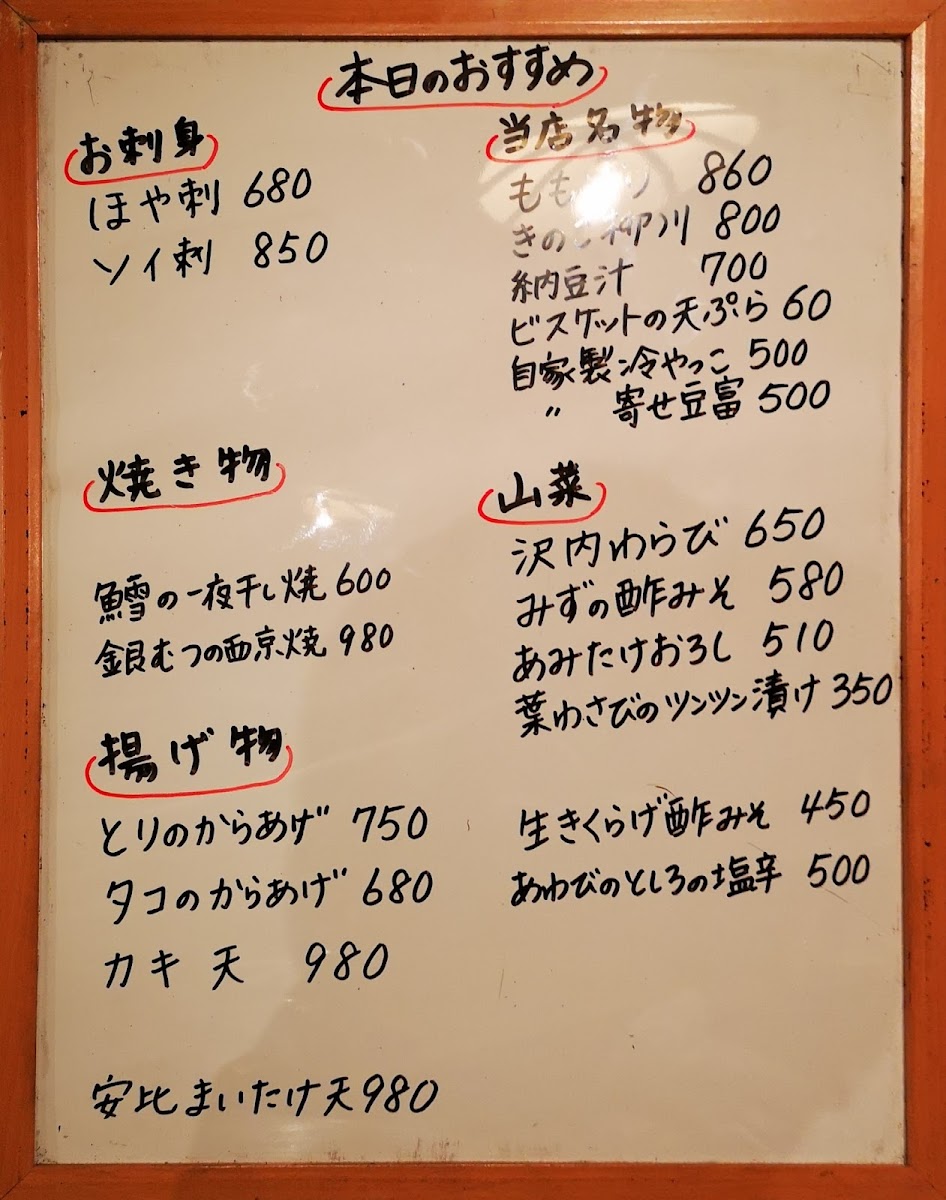 本日のおすすめ
お刺身
ほや刺 680
ソイ刺 850
焼き物
鱈の一夜干し焼 600
銀むつの西京焼 980
揚げ物
とりのからあげ 750
タコのからあげ 680
カキ天 980
安比まいたけ天 980
当店名物
860
柳川 800
納豆汁 700
ビスケットの天ぷら 60
自家製冷やっこ 500
〃 寄せ豆富 500
山菜
沢内わらび 650
みずの酢みそ 580
あみたけおろし 510
葉わさびのツンツン漬け 350
生きくらげ酢みそ 450
あわびのとしろの塩辛 500